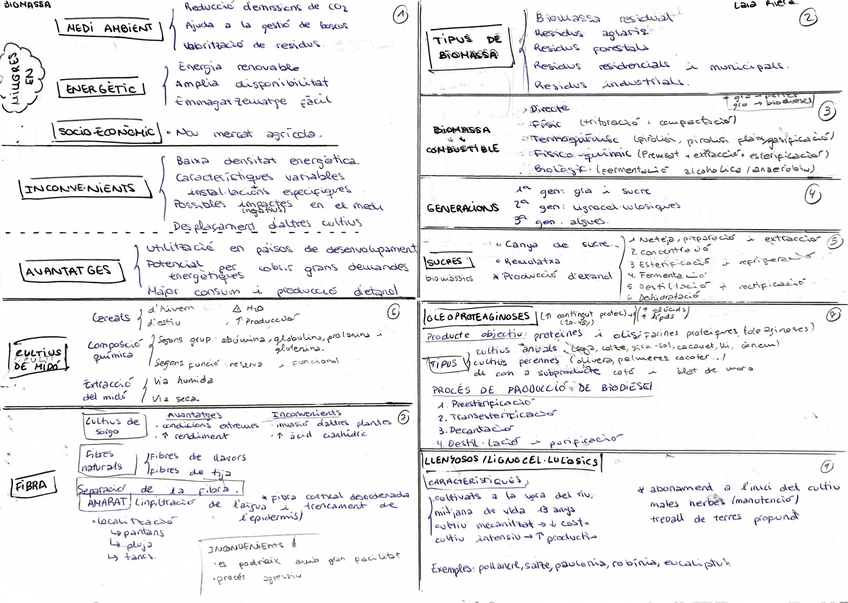 BIOMASSA
1
MILLORES EN
MEDI AMBIENT
Reducció d'emissions de CO2
Ajuda a la gestió de boscos
Valorització de residus.
ENERGÈTIC
Energia renovable
Amplia disponibilitat
Emmagatzematge fàcil
SOCIO-ECONÒMIC
• Nou mercat agrícola.
INCONVENIENTS
Baixa densitat energètica
Característiques variables
instal·lacions específiques
Possibles impactes en el medi
(negatius)
Desplaçament d'altres cultius
AVANTATGES
Utilització en països de desenvolupament
Potencial per cobrir grans demandes
energètiques
Major consum i producció d'etanol
6
CULTIUS DE MIDÓ
Cereals
d'hivern
d'estiu
H2O
↑ Producció
Composició química
Segons grup: albúmina, globulina, prolamina i
glutenina.
Segons funció: reserva i funcional
Extracció del midó
Via humida
Via seca.
FIBRA
Cultius de sorgo
Avantatges
• condicions extremes
• ↑ rendiment
Inconvenients
• invasió d'altres plantes
• ↑ àcid cianhídric
Fibres naturals
Fibres de llavors
Fibres de tija
Separació de la fibra.
AMARAT (infiltració de l'aigua i trencament de
l'epidermis)
* fibra cortical
• localització
↳ pantans
↳ pluja
↳ tancs.
INCONVENIENTS
• es podreix amb gran facilitat
• procés agressiu
2
TIPUS DE BIOMASSA
Biomassa residual
Residus agraris.
Residus forestals
Residus residencials i municipals.
Residus industrials.
3
BIOMASSA
↓ ↓
COMBUSTIBLE
gra → biodiesel
• Directe
• Físic (trituració i compactació)
• Termoquímic (piròlisi, piròlisi flaix, gasificació)
• Físico-químic (Premsat + extracció + esterificació)
• Biològic (fermentació alcohòlica / anaeròbia)
4
GENERACIONS
1ª gen: gra i sucre
2ª gen: lignocel·lulòsiques
3ª gen: algues.
5
SUCRES
biomàssics
• Canya de sucre
• Remolatxa
* Producció d'etanol
1 Neteja, preparació i extracció
2 Concentració
3 Esterificació i refrigeració
4 Fermentació
5 Destil·lació i rectificació
6 Deshidratació
8
OLEOPROTEAGINOSES
(↑ contingut proteic)
↑ glúcids
↑ lípids
Producte objectiu: proteïnes i olis, farines proteiques (oleaginoses)
TIPUS
cultius anuals (soja, colza, gira-sol, cacauet, lli, cànem)
cultius perennes (olivera, palmeres
oli com a subproducte cotó i blat de moro
PROCÉS DE PRODUCCIÓ DE BIODIESEL
1. Preesterificació
2. Transesterificació
3. Decantació
4. Destil·lació i purificació
9
LLENYOSOS / LIGNOCEL·LULÒSICS
CARACTERÍSTIQUES
cultivats a la vora del riu.
mitjana de vida 13 anys
cultiu mecanitzat → ↓ cost
cultiu intensiu → ↑ productiu
* abonament a l'inici del cultiu
males herbes (manutenció)
treball de terres profund
Exemples: pollancre, salze, paulonia, robínia, eucaliptus.